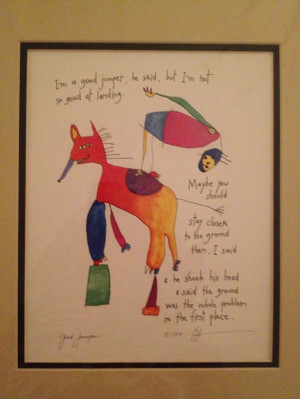 I'm a good jumper, he said, but I'm not
so good at landing.
Maybe you
should
stay closer
to the ground
then, I said
& he shook his head
& said the ground
was the whole problem
in the first place.
Good Jumper